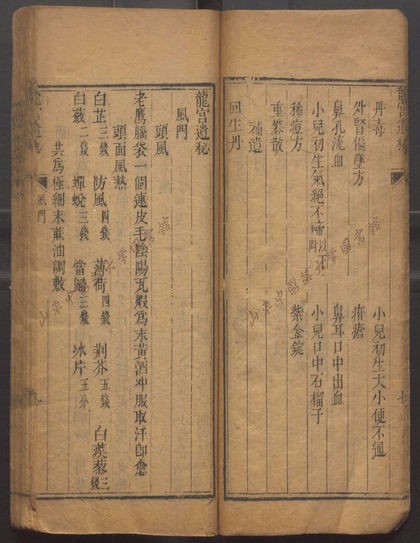 龍宮遺秘
丹毒 小兒初生大小便不通
外腎偏墜方 疳瘡
鼻孔流血 鼻耳口中出血
小兒初生氣絕不啼 小兒口中石榴子
稀痘方 紫金錠
重攀散
補遺
回生丹
龍宮遺秘
風門
頭風
老鷹腦袋一個連皮毛陰陽瓦煆為末黃酒冲服取汗即愈
頭面風熱
白芷三錢 防風四錢 薄荷四錢 荊芥五錢 白蒺藜三錢
白薇二錢 蟬蛻三錢 當歸三錢 冰片五分
共為極細末蔴油調敷
風門